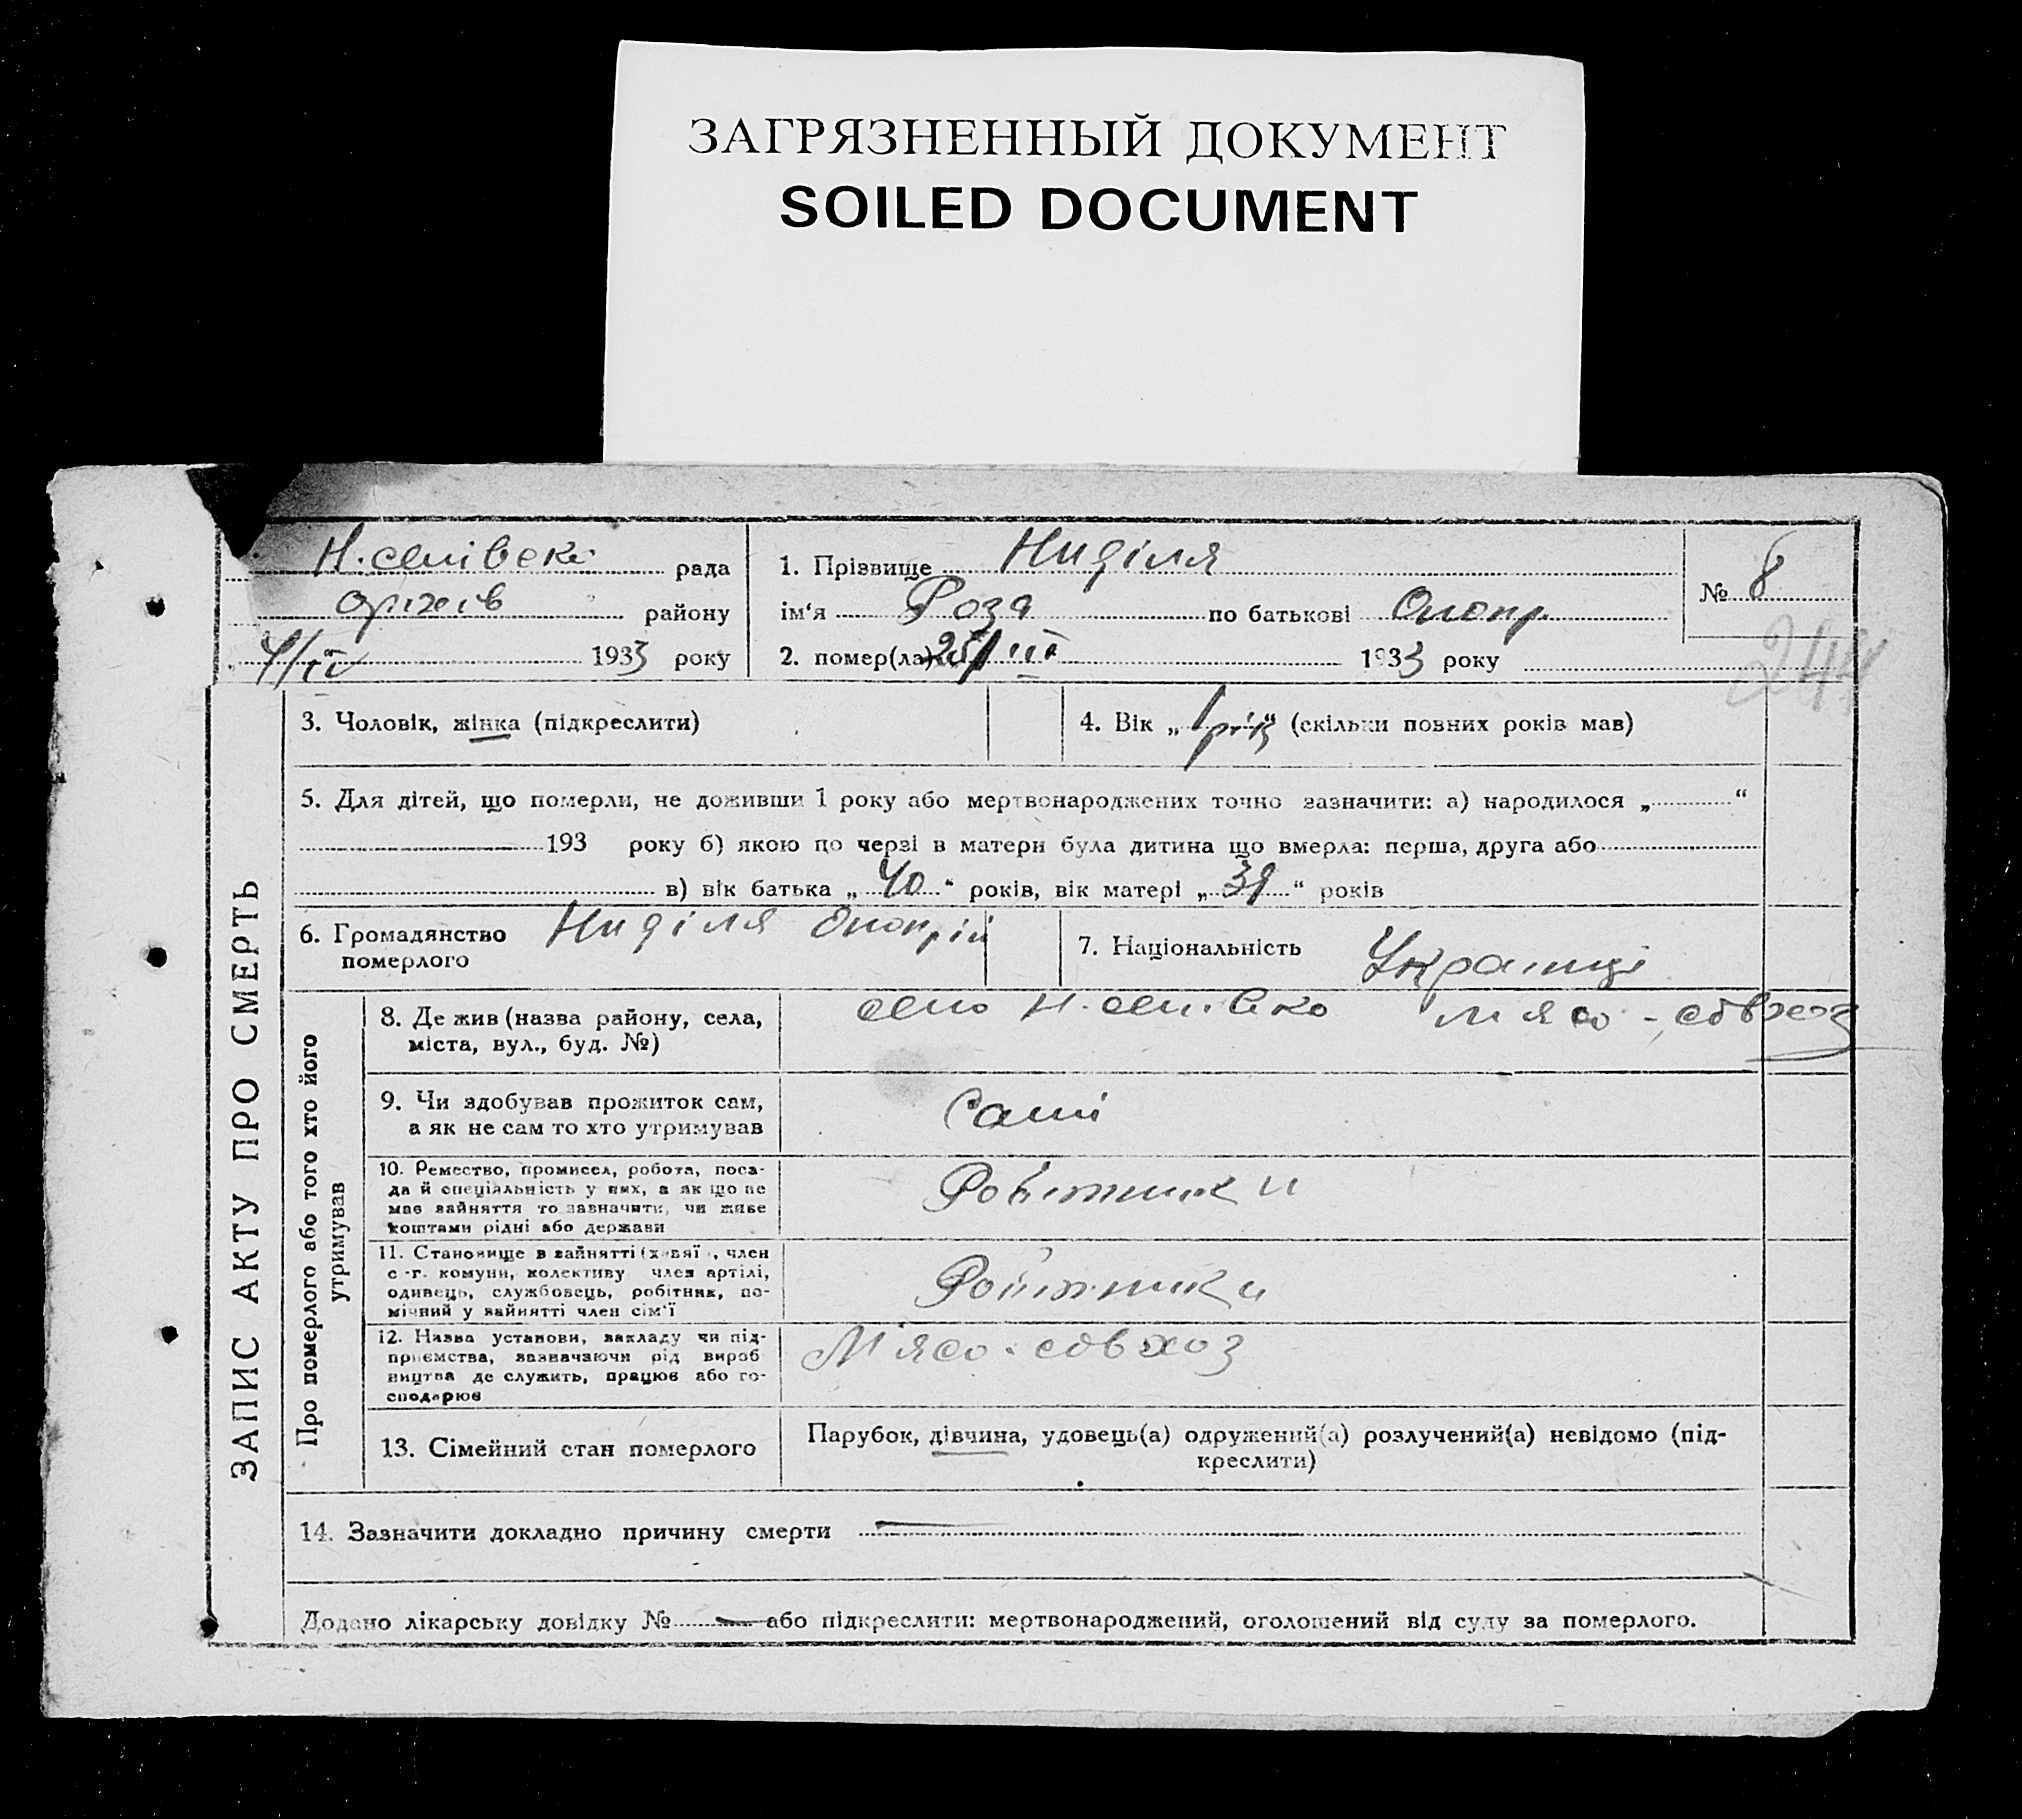 ЗАГРЯЗНЕННЫЙ ДОКУМЕНТ
SOILED DOCUMENT
рада
району
4/IV 1933 року
1. Прізвище Ниділя
ім‘я Роза по батькові Онопр.
2. помер(ла) 25/III 1933 року
№ 8
244
ЗАПИС АКТУ ПРО СМЕРТЬ
3. Чоловік, жінка (підкреслити)
4. Вік „1 рік“ (скільки повних років мав)
5. Для дітей, що померли, не доживши 1 року або мертвонароджених точно зазначити: а) народилося „ “
193 року б) якою по черзі в матери була дитина що вмерла: перша, друга або
в) вік батька „40“ років, вік матері „39“ років
6. Громадянство померлого Ниділя Онопрій
7. Національність Україنці
Про померлого або того хто його утримував
8. Де жив (назва району, села,
міста, вул., буд. №)
мясо-совхоз
9. Чи здобував прожиток сам,
а як не сам то хто утримував
Самі
10. Ремество, промисел, робота, поса-
да й спеціяльність у них, а як що не
має зайняття то зазначити, чи живе
коштами рідні або держави
Робітники
11. Становище в зайнятті (хазяї, член
с.-г. комуни, колективу член артілі,
одинець, службовець, робітник, по-
мічний у зайнятті член сім‘ї
Робітники
12. Назва установи, закладу чи під-
приємства, зазначаючи рід вироб
ництва де служить, працює або го-
сподарює
Мясо-совхоз
13. Сімейний стан померлого
Парубок, дівчина, удовець(а) одружений(а) розлучений(а) невідомо (під-
креслити)
14. Зазначити докладно причину смерти —
Додано лікарську довідку № — або підкреслити: мертвонароджений, оголошений від суду за померлого.